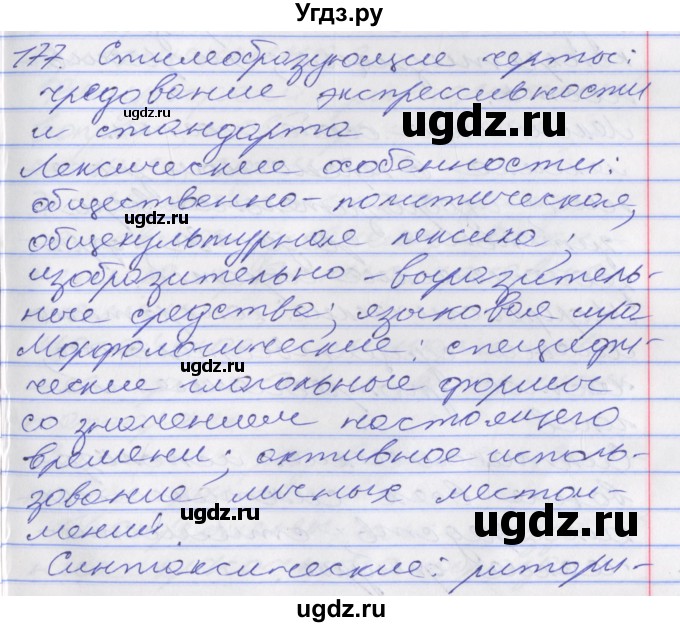 Угдз.ру
177. Стилеобразующие черты:
чредование экспрессивности
ugdz.ru
и стандарта
ugdz.ru
Лексические особенности:
общественно-политическая,
ugdz.ru
общекультурная лексика;
ugdz.ru
изобразительно-выразитель-
ные средства; языковая игра
Морфологические: специфи-
ugdz.ru
ческие глагольные формы
со значением настоящего
времени; активное исполь-
зование личных местои-
ugdz.ru
ugdz.ru
мений.
Синтаксические: ритори-
ugdz.ru